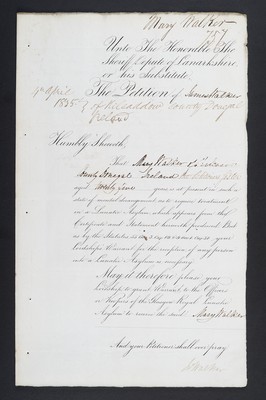 Mary Walker
757
Unto The Honorable The
Sheriff Depute of Lanarkshire
or his Substitute;
9th April
1835
The Petition of James Walker
of County Donegal
Ireland
Humbly Sheweth,
That Mary Walker
County Donegal Ireland
aged years is at present in such a
state of mental derangement as to require treatment
in a Lunatic Asylum which appears from the
Certificate and Statement herewith produced But
as by the Statutes your
Lordships Warrant for the reception of any person
into a Lunatic Asylum is necessary
May it therefore please your
Lordship to grant Warrant to the Officers
or Keepers of the Glasgow Royal Lunatic
Asylum to receive the said Mary Walker
And your Petitioner shall ever pray